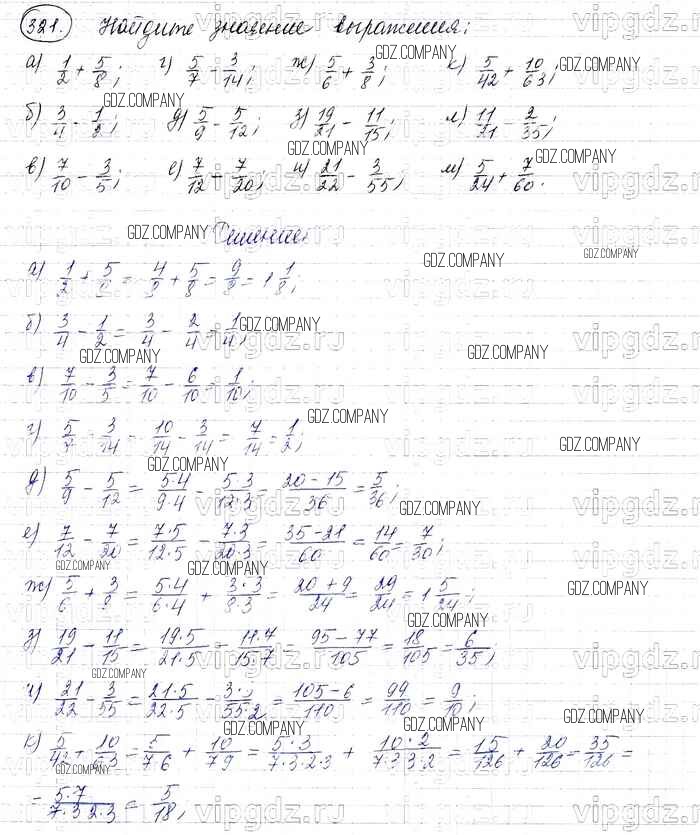 321. Найдите значение выражения:
а) 1/2 + 5/8; г) 5/7 − 3/14; ж) 5/6 + 3/8; к) 5/42 + 10/63;
б) 3/4 − 1/2; д) 5/9 − 5/12; з) 19/21 − 11/15; л) 11/21 − 2/35;
в) 7/10 − 3/5; е) 7/12 − 7/20; и) 21/22 − 3/55; м) 5/24 + 7/60.
Решение:
а) 1/2 + 5/8 = 4/8 + 5/8 = 9/8 = 1 1/8;
б) 3/4 − 1/2 = 3/4 − 2/4 = 1/4;
в) 7/10 − 3/5 = 7/10 − 6/10 = 1/10;
г) 5/7 − 3/14 = 10/14 − 3/14 = 7/14 = 1/2;
д) 5/9 − 5/12 = 5·4/9·4 − 5·3/12·3 = 20−15/36 = 5/36;
е) 7/12 − 7/20 = 7·5/12·5 − 7·3/20·3 = 35−21/60 = 14/60 = 7/30;
ж) 5/6 + 3/8 = 5·4/6·4 + 3·3/8·3 = 20+9/24 = 29/24 = 1 5/24;
з) 19/21 − 11/15 = 19·5/21·5 − 11·7/15·7 = 95−77/105 = 18/105 = 6/35;
и) 21/22 − 3/55 = 21·5/22·5 − 3·2/55·2 = 105−6/110 = 99/110 = 9/10;
к) 5/42 + 10/63 = 5/7·6 + 10/7·9 = 5·3/7·3·2·3 + 10·2/7·3·3·2 = 15/126 + 20/126 = 35/126 =
= 5·7/7·3·2·3 = 5/18;
GDZ.COMPANY
vipgdz.ru